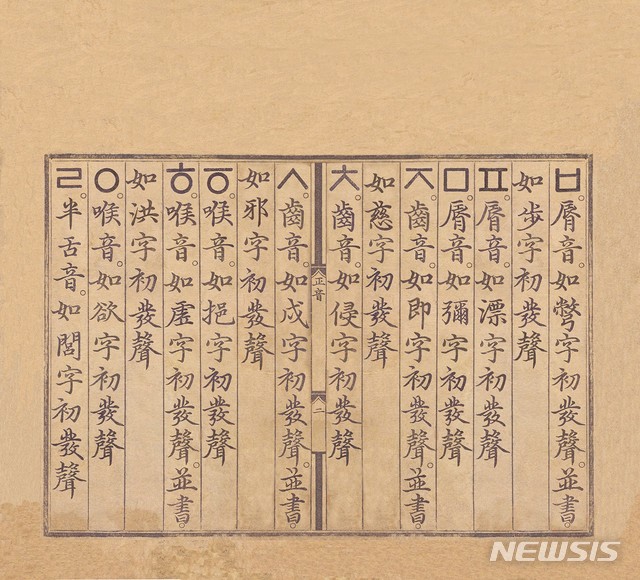 ㅂ。脣音。如彆字初發聲。並書。
如步字初發聲
ㅍ。脣音。如漂字初發聲
ㅁ。脣音。如彌字初發聲
ㅈ。齒音。如即字初發聲。並書。
如慈字初發聲
ㅊ。齒音。如侵字初發聲
正音
二
ㅅ。齒音。如戌字初發聲。並書。
如邪字初發聲
ㆆ。喉音。如挹字初發聲
ㅎ。喉音。如虛字初發聲。並書。
如洪字初發聲
ㅇ。喉音。如欲字初發聲
ㄹ。半舌音。如閭字初發聲
NEWSIS